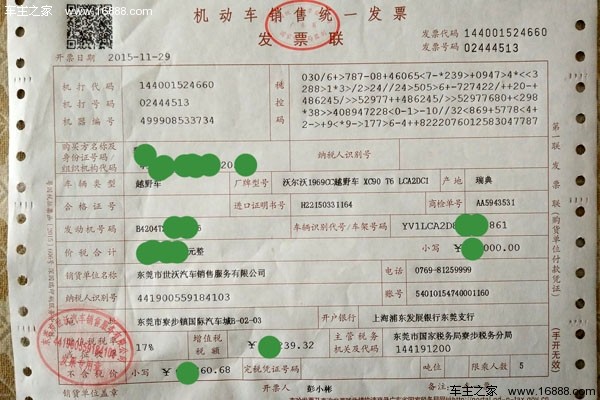 车主之家 www.16888.com
机动车销售统一发票
发票联
发票代码 144001524660
发票号码 02444513
开票日期 2015-11-29
机打代码 144001524660
机打号码 02444513
机器编号 499908533734
税控码
030/6+>787-08+46065<7-*239>+0947>4*<<3
288>1*3>/2>24//24>505>6+-727422/++20-+
486245/>>52977++486245/>>52977680+<298
*38>>408947228<0-1>-10//32<869+5778<4+
2->+9<*9->177>6-4++8222076012583047787
购买方名称及身份证号码/组织机构代码
纳税人识别号
车辆类型 越野车
厂牌型号 沃尔沃1969CC越野车 XC90 T6 LCA2DC1
产地 瑞典
合格证号
进口证明书号 H22150331164
商检单号 AA5943531
发动机号码 B42047
车辆识别代号/车架号码 YV1LCA2D 861
价税合计 元整
小写 ￥ 000.00
销货单位名称 东莞市世沃汽车销售服务有限公司
电话 0769-81259999
441900559184103
账号 54010154740001160
东莞市寮步镇国际汽车城B-02-03
开户银行 上海浦东发展银行东莞支行
17%
增值税税额 ￥ 239.32
主管税务机关及代码 东莞市国家税务局寮步税务分局
144191200
不含税价 小写 ￥ 60.68
完税凭证号码
吨位
限乘人数 5
销货单位盖章
开票人 彭小彬
备注
第一联 发票联(购货单位付款凭证)
(手开无效)
441900559184103
发票专用章
车主之家 www.16888.com